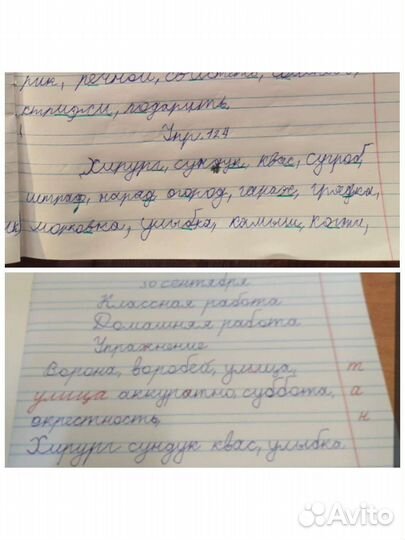 рик, речной,
стрижи, подарить
Упр. 124
Хирург, сундук, квас, сугроб,
штраф, наряд, огород, гараж, грядка,
морковка, улыбка, камыш, когти,
30 сентября
Классная работа
Домашняя работа
Упражнение
Ворона, воробей, улица, т
улица аккуратно, суббота, а
окрестность, н
Хирург сундук квас, улыбка
Avito